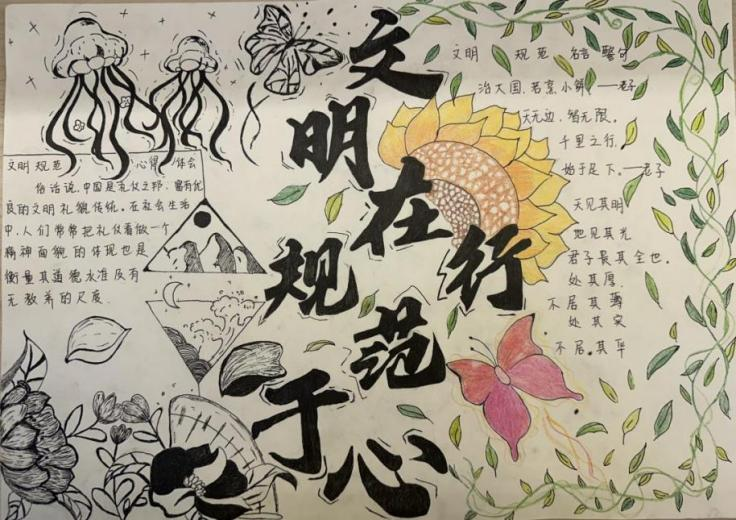 文明
规范
在
行
于
心
文明 规范 心得 体会
俗话说,中国是礼仪之邦,富有优
良的文明礼貌传统。在社会生活
中,人们常常把礼仪看做一个
精神面貌的体现也是
衡量其道德水准及有
无教养的尺度.
文明 规范 名言 警句
治大国,若烹小鲜。——老子
天无边,智无限。
千里之行,
始于足下。——老子
天见其明
地见其光
君子贵其全也。
处其厚
不居其薄
处其实
不居其华